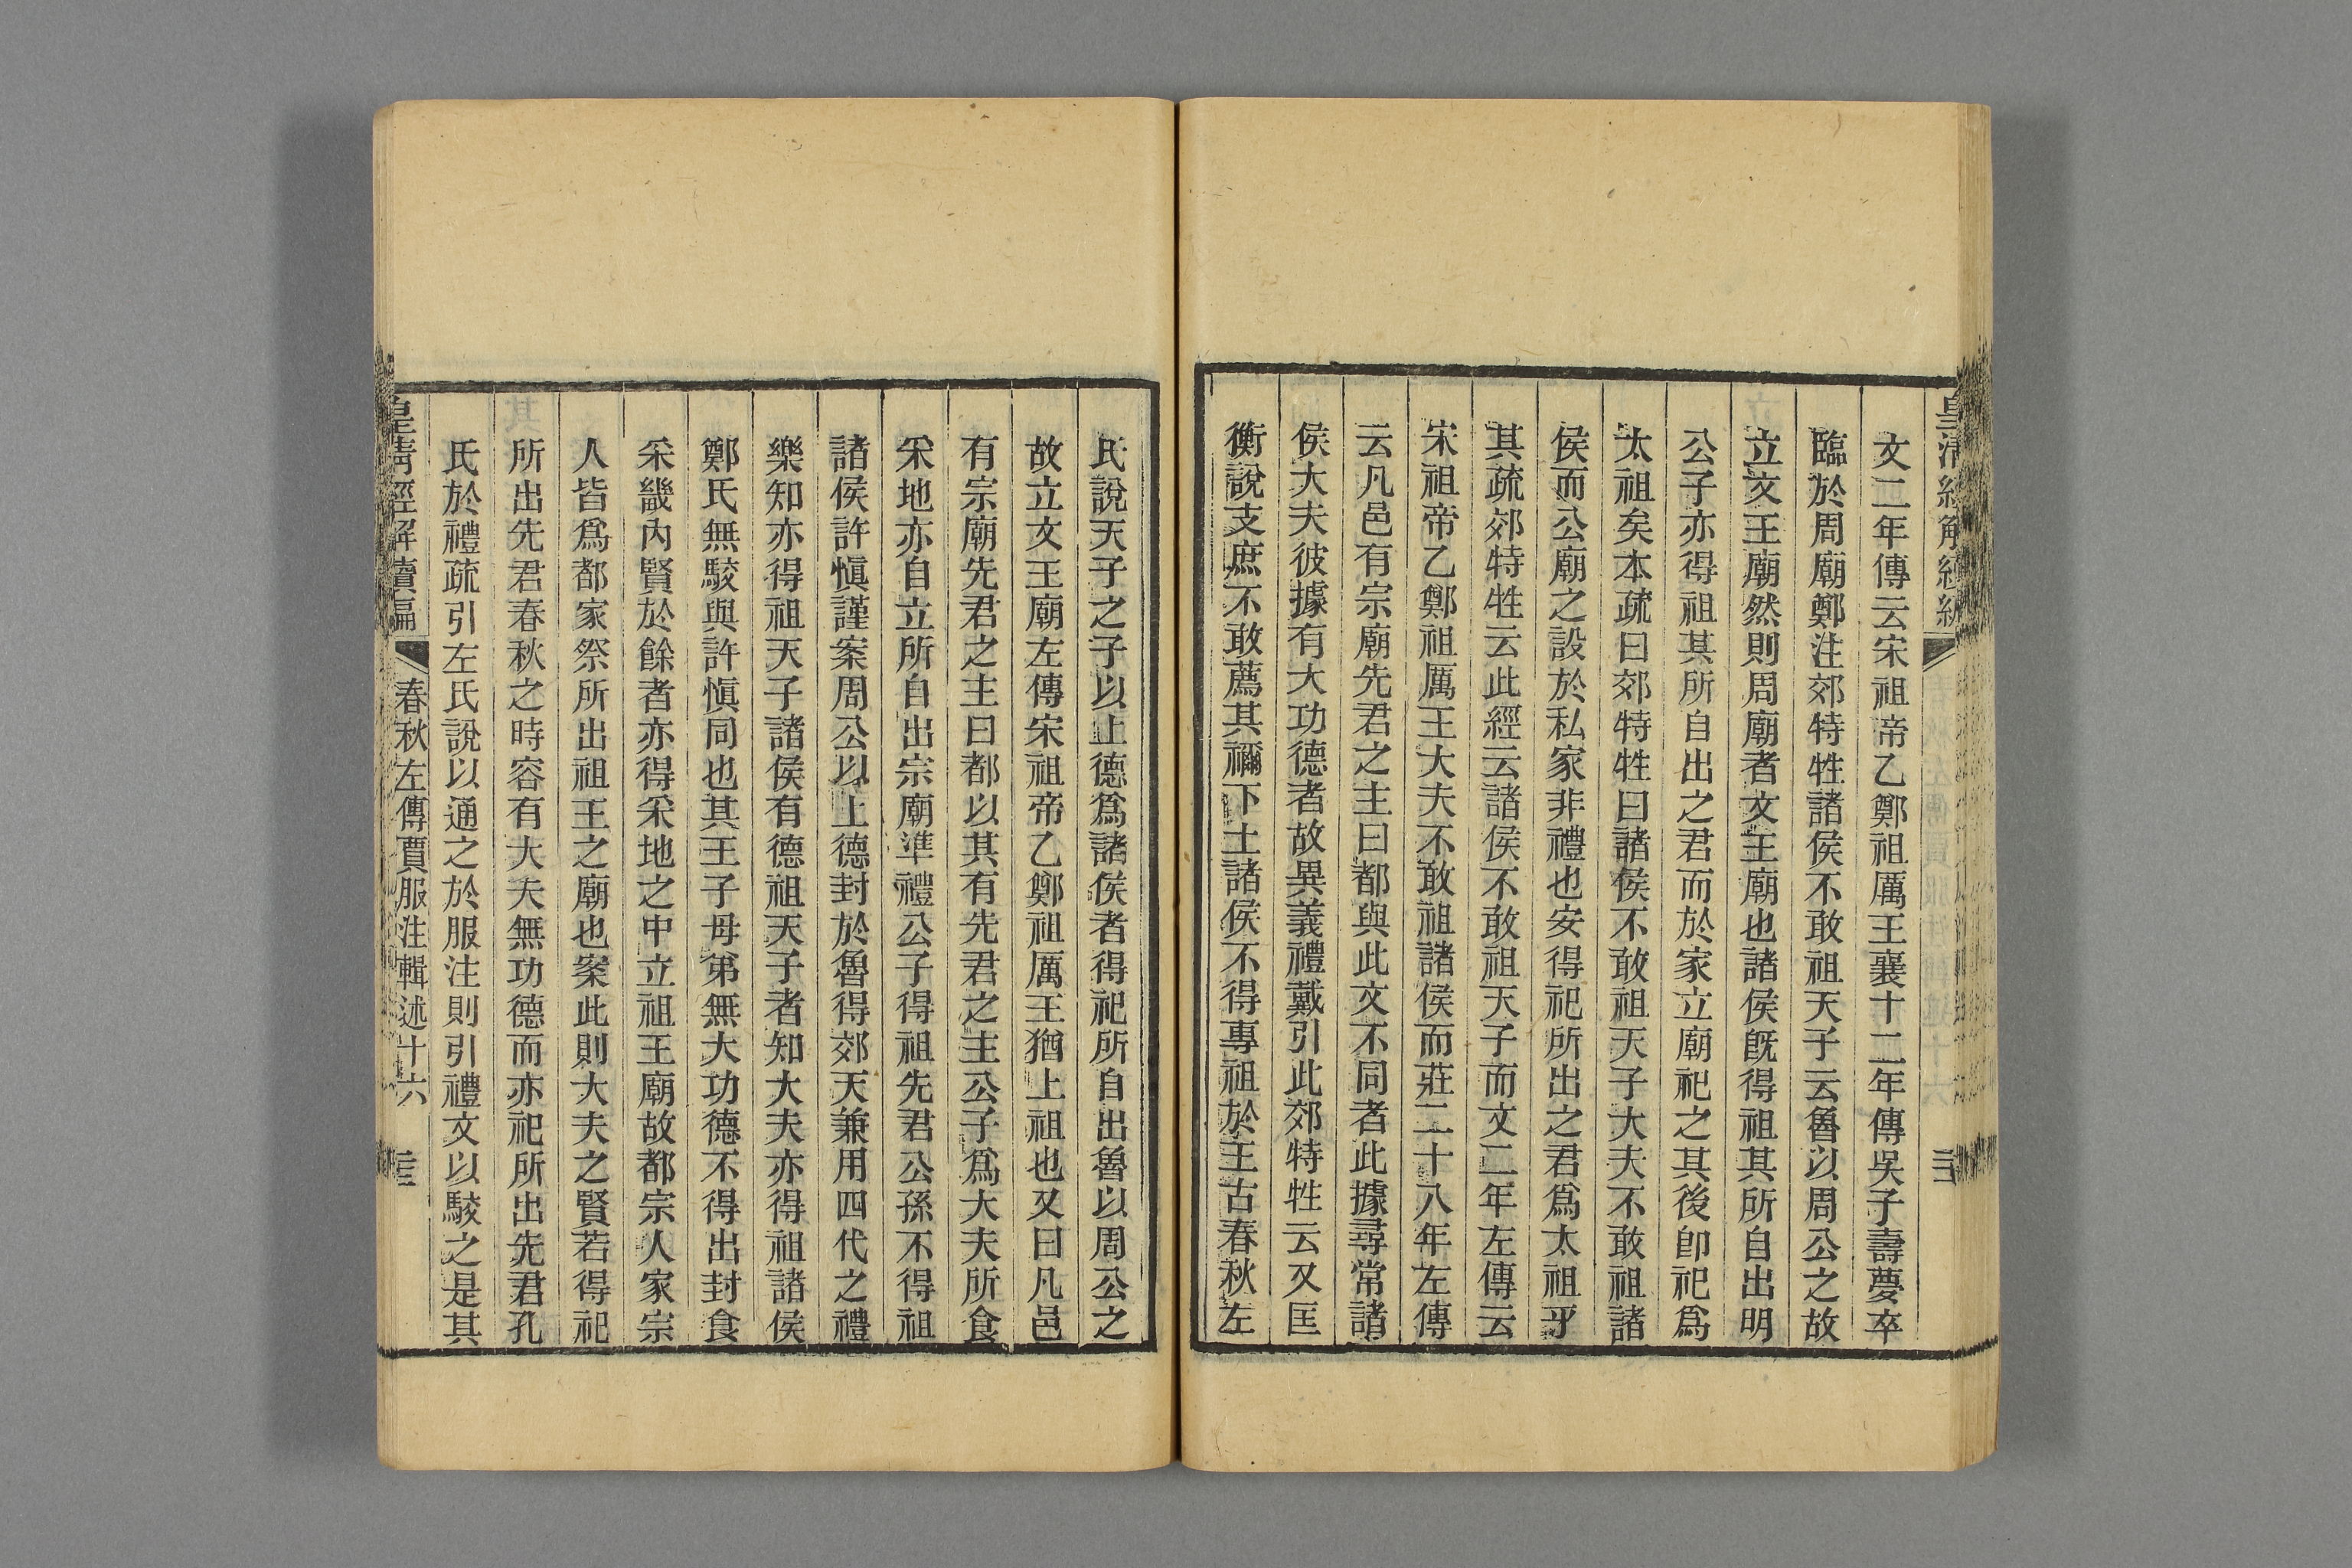 皇清經解續編
文二年傳云宋祖帝乙鄭祖厲王襄十二年傳吳子壽夢卒
臨於周廟鄭注郊特牲諸侯不敢祖天子云魯以周公之故
立文王廟然則周廟者文王廟也諸侯旣得祖其所自出明
公子亦得祖其所自出之君而於家立廟祀之其後卽祀爲
太祖矣本疏曰郊特牲曰諸侯不敢祖天子大夫不敢祖諸
侯而公廟之設於私家非禮也安得祀所出之君爲太祖乎
其疏郊特牲云此經云諸侯不敢祖天子而文二年左傳云
宋祖帝乙鄭祖厲王大夫不敢祖諸侯而莊二十八年左傳
云凡邑有宗廟先君之主曰都與此文不同者此據尋常諸
侯大夫彼據有大功德者故異義禮戴引此郊特牲云又匡
衡說支庶不敢薦其禰下土諸侯不得專祖於王古春秋左
氏說天子之子以上德爲諸侯者得祀所自出魯以周公之
故立文王廟左傳宋祖帝乙鄭祖厲王猶上祖也又曰凡邑
有宗廟先君之主曰都以其有先君之主公子爲大夫所食
采地亦自立所自出宗廟準禮公子得祖先君公孫不得祖
諸侯許愼謹案周公以上德封於魯得郊天兼用四代之禮
樂知亦得祖天子諸侯有德祖天子者知大夫亦得祖諸侯
鄭氏無駮與許愼同也其王子母弟無大功德不得出封食
采畿內賢於餘者亦得采地之中立祖王廟故都宗人家宗
人皆爲都家祭所出祖王之廟也案此則大夫之賢若得祀
所出先君春秋之時容有大夫無功德而亦祀所出先君孔
氏於禮疏引左氏說以通之於服注則引禮文以駮之是其
皇淸經解續編 春秋左傳賈服注輯述十六